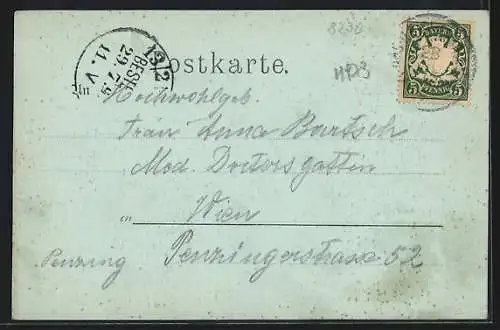 8230
1342
BEST.
29.7.9
11.V
Postkarte.
HP3
BAYERN
5 5
PFENNIG
5 5
An Hochwohlgeb.
Frau Anna Bartsch
Med. Doctorsgattin
in Wien
Penzing Penzingerstrasse 52